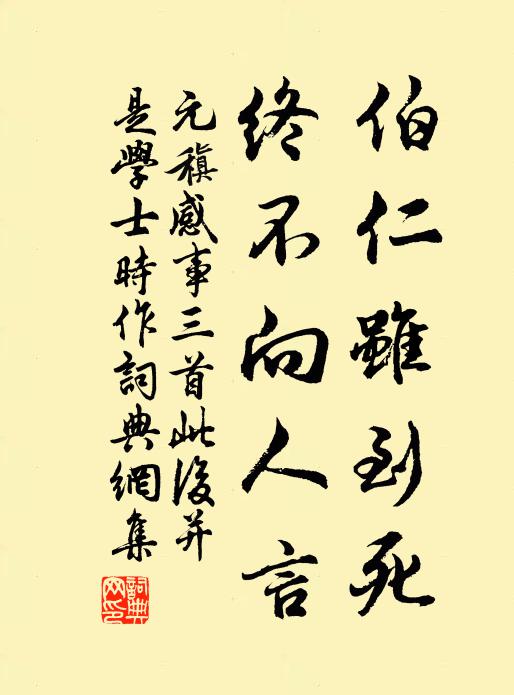 伯仁雖到死
終不向人言
元稹感事三首此後並
是學士時作詞典網集
詞典網印